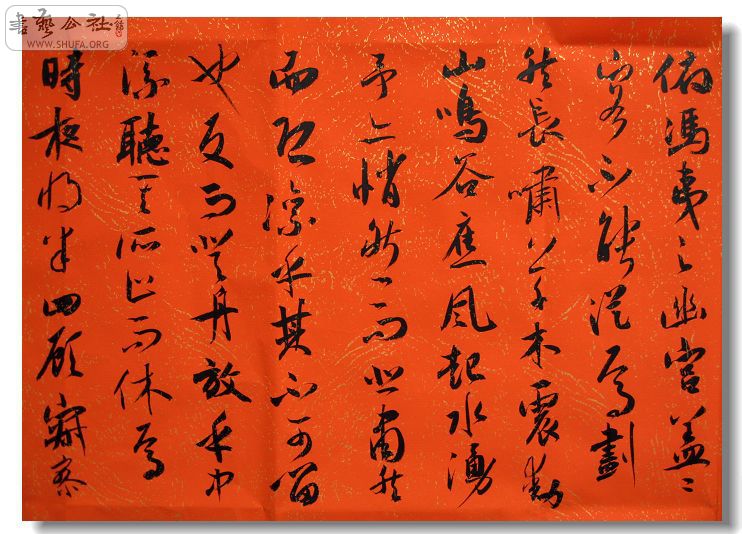 俯馮夷之幽宮蓋二
客不能從焉劃
然長嘯草木震動
山鳴谷應風起水湧
予亦悄然而悲肅然
而恐凜乎其不可留
也反而登舟放乎中
流聽其所止而休焉
時夜將半四顧寂寥
書藝公社
WWW.SHUFA.ORG